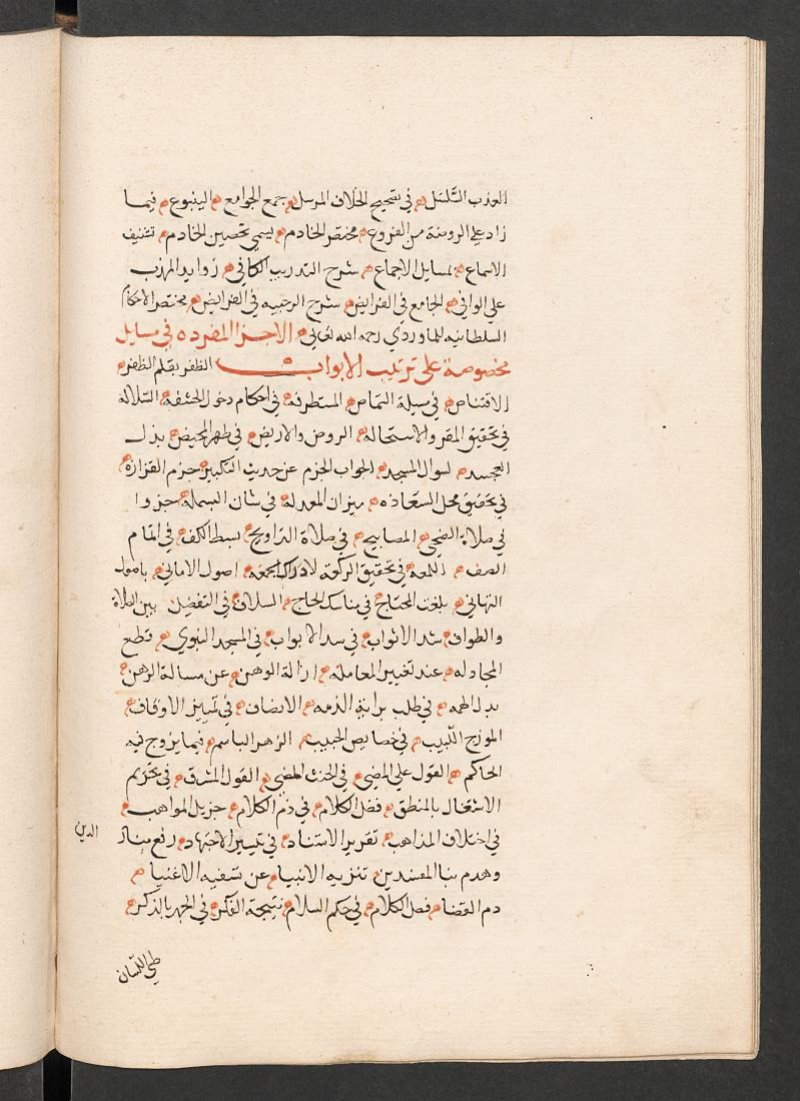 العذب السلسل في تصحيح الخلاف المرسل جمع الجوامع الينبوع فيما
زاد على الروضة من الفروع مختصر الخادم يسمى تحصين الخادم تشنيف
الاسماع بمسايل الاجماع شرح التدريب الكافي زوايد المهذب
على الوافي الجامع في الفرايض شرح الرحبيه في الفرايض مختصر الاحكام
السلطانيه للماوردي رحمه الله تعالى الاجزا المفرده في مسايل
مخصوصة على ترتيب الابواب الظفر بقلم الظفر
الاقتناص في مسيلة التماص المستطرفه في احكام دخول الحشفه السلاله
في تحقيق المقر والاستحاله الروض والاريض في طهر المحيض بذل
العسجد لسوال المسجد الجواب الجزم عن حديث التكبير جزم القزازه
في تحقيق محل السعاذه ميزان المعدله في شان البسمله جزوا
في صلاة الضحى المصابيح في صلاة التراويح بسط الكف في اتمام
الصف اللمعه في تحقيق الركعه لادراك الجمعه اصول الاماني باصول
التهاني بلغت المحتاج في مناسك الحاج السلاف في التفضيل بين الصلاة
والطواف شد الاثواب في سد الابواب في المسجد النبوي قطع
المجادله عند تغيير المعامله ازالة الوهن عن مسالة الرهن
بدل الهمه في طلب براية الذمه الانصاف في تمييز الاوقاف
الموزج اللبيب في خصايص الحبيب الزهر الباسم فيما يزوج فيه
الحاكم القول على المضي في الحنث المضي القول المشرق في تحريم
الاشتغال بالمنطق فصل الكلام في ذم الكلام جزيل المواهب
في اختلاف المذاهب تقرير الاستناد في تيسير الاجتهاد رفع منار
الدين
وهدم بنا المفسدين تنزيه الانبيا عن تسفيه الاغنيا
دم القضا فصل الكلام في حكم السلام نتيجة الفكر في الجهر بالذكر
طي اللسان